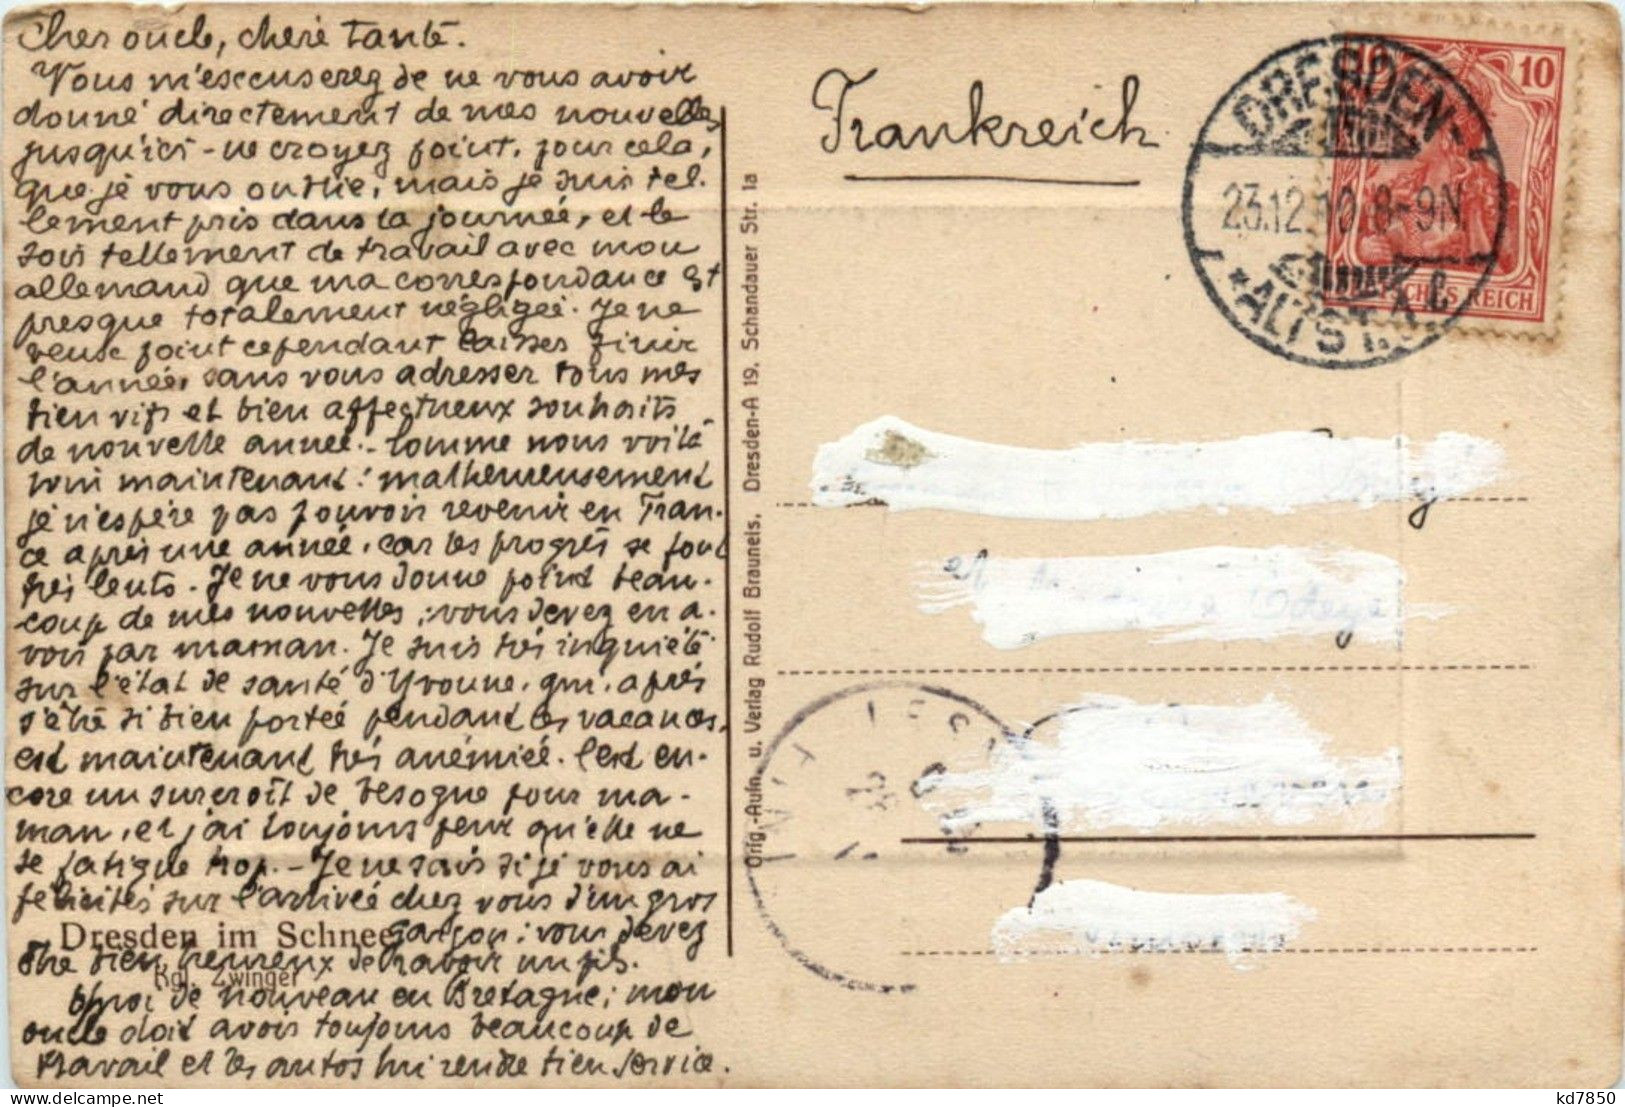 Cher oncle, chère Tante.
Vous m'excuserez de ne vous avoir
donné directement de mes nouvelles
jusqu'ici - ne croyez point, pour cela,
que je vous oublie, mais je suis tel-
lement pris dans la journée, et le
soir tellement de travail avec mon
allemand que ma correspondance est
presque totalement négligée. Je ne
veux point cependant laisser finir
l'année, sans vous adresser tous mes
bien vifs et bien affectueux souhaits
de nouvelle année. - Comme nous voilà
loin maintenant : malheureusement
je n'espère pas pouvoir revenir en Fran-
ce après une année, car les progrès se font
très lents. Je ne vous donne point beau-
coup de mes nouvelles ; vous devez en a-
voir par maman. Je suis très inquiété
sur l'état de santé d'Yvonne, qui, après
s'être si bien portée pendant les vacances,
est maintenant très anémiée. C'est en-
core un surcroît de besogne pour ma-
man, et j'ai toujours peur qu'elle ne
se fatigue trop. - Je ne sais si je vous ai
félicités sur l'arrivée chez vous d'un gros
garçon ; vous devez
être bien heureux de ravoir un fils.
Quoi de nouveau en Bretagne ; mon
oncle doit avoir toujours beaucoup de
travail et les autos lui rende bien service.
Dresden im Schnee
Kgl. Zwinger
Orig.-Aufn. u. Verlag Rudolf Brauneis, Dresden-A 19. Schandauer Str. 1a
Frankreich
DRESDEN-
23.12.10.8-9N
*ALTST.
10
REICH
et
kd7850